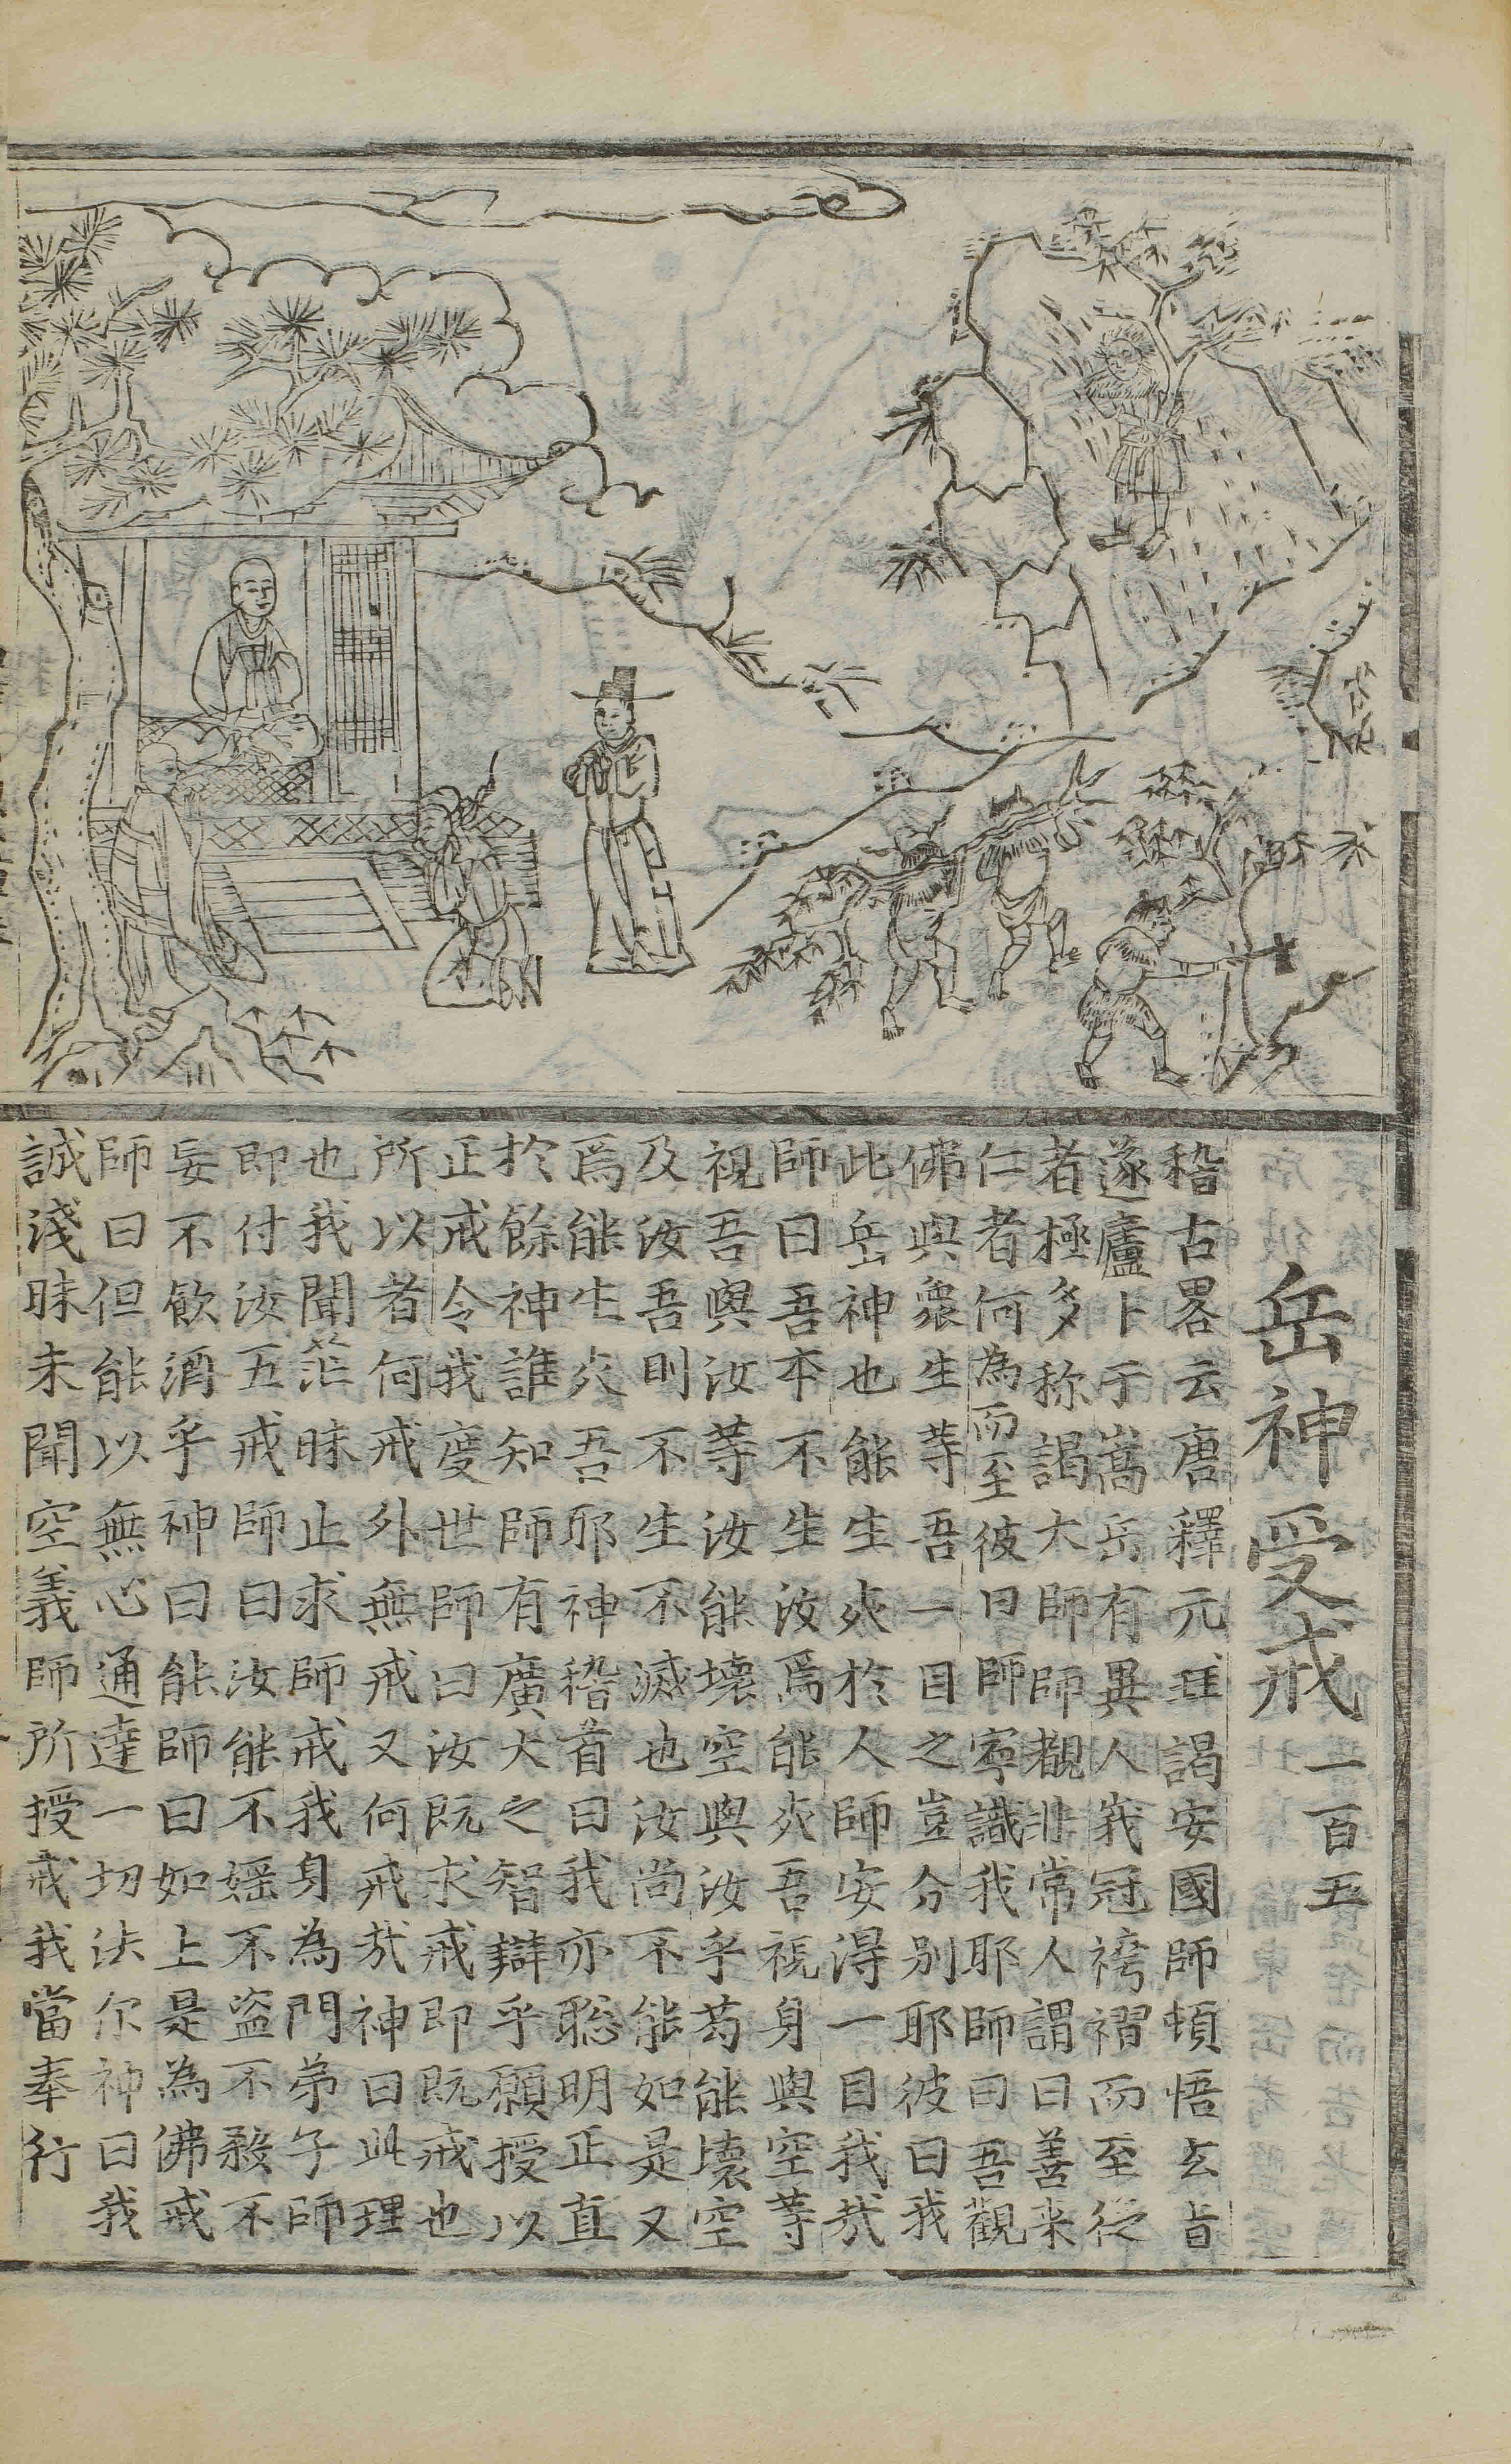 一百五
岳神受戒
稽古畧云唐釋元珪謁安國師頓悟玄旨
遂廬卜于嵩岳有異人峩冠袴褶而至從
者極多称謁大師師覩非常人謂曰善来
仁者何為而至彼曰師寧識我耶師曰吾觀
佛與衆生等吾一目之豈分别耶彼曰我
此岳神也能生死於人師安得一目我㢤
師曰吾本不生汝焉能死吾視身與空等
視吾與汝等汝能壊空與汝乎苟能壊空
及汝吾則不生不滅也汝尚不能如是又
焉能生死吾耶神稽首曰我亦聡明正直
於餘神誰知師有廣大之智辯乎願授以
正戒令我度世師曰汝既求戒即既戒也
所以者何戒外無戒又何戒㢤神曰此理
也我聞茫昧止求師戒我身為門弟子師
即付汝五戒師曰汝能不婬不盗不殺不
妄不飲酒乎神曰能師曰如上是為佛戒
師曰但能以無心通達一切法尔神曰我
誠淺昧未聞空義師所授戒我當奉行